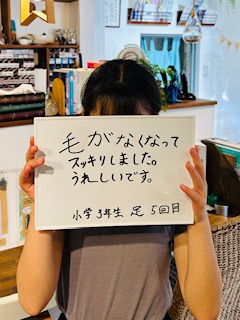 毛がなくなって
スッキリしました。
うれしいです。
小学3年生 足 5回目